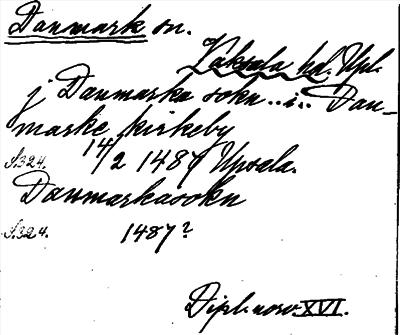 Danmark sn.
Vaksala hd. Upl.
j Danmarka sokn .. i .. Dan-
marke kirkeby
S.324. 14/2 1487 Upsala.
Danmarkasokn
S.324. 1487?
Dipl. norv. XVI.